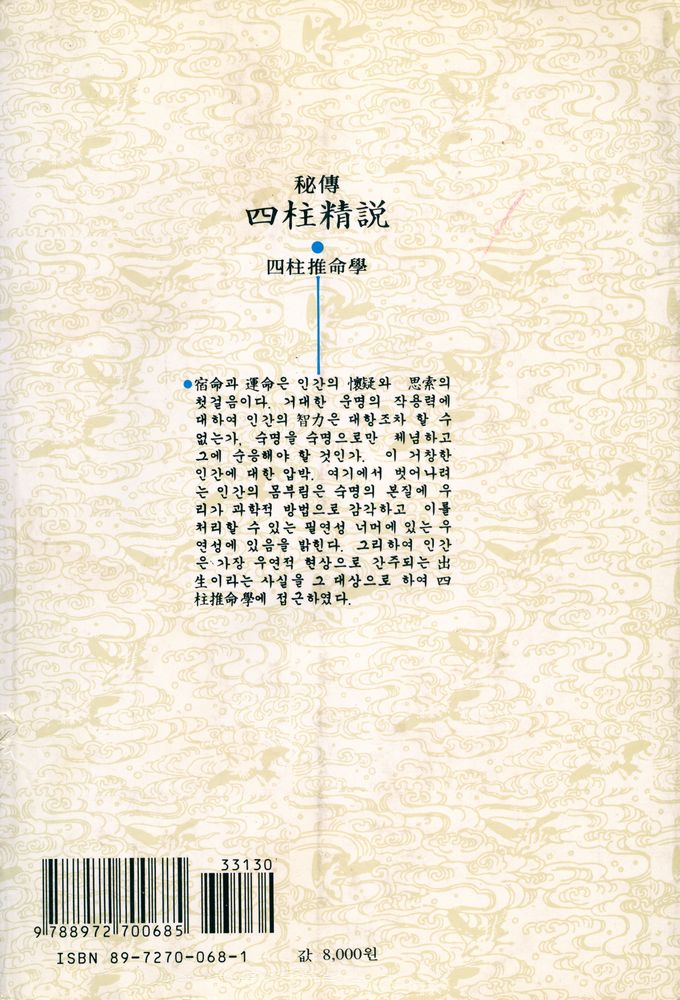 秘傳
四柱精説
四柱推命學
宿命과 運命은 인간의 懷疑와 思索의
첫걸음이다. 거대한 운명의 작용력에
대하여 인간의 智力은 대항조차 할 수
없는가, 숙명을 숙명으로만 체념하고
그에 순응해야 할 것인가. 이 거창한
인간에 대한 압박. 여기에서 벗어나려
는 인간의 몸부림은 숙명의 본질에 우
리가 과학적 방법으로 감각하고 이를
처리할 수 있는 필연성 너머에 있는 우
연성에 있음을 밝힌다. 그리하여 인간
은 가장 우연적 현상으로 간주되는 出
生이라는 사실을 그 대상으로 하여 四
柱推命學에 접근하였다.
33130
9 788972 700685
ISBN 89-7270-068-1 값 8,000원